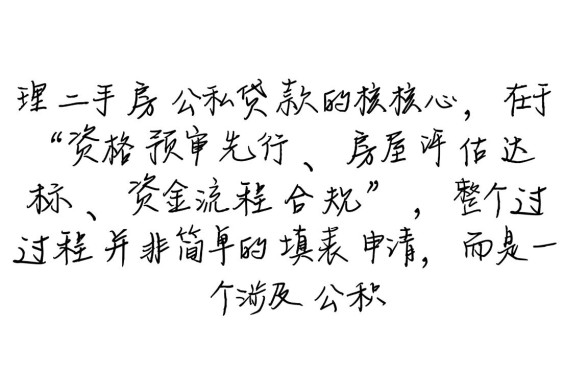 理二手房公私贷款的核核心，在于
“资格预审先行、房屋评估达
标、资金流程合规”，整个过
过程并非简单的填表申请，而是一
个涉及公积